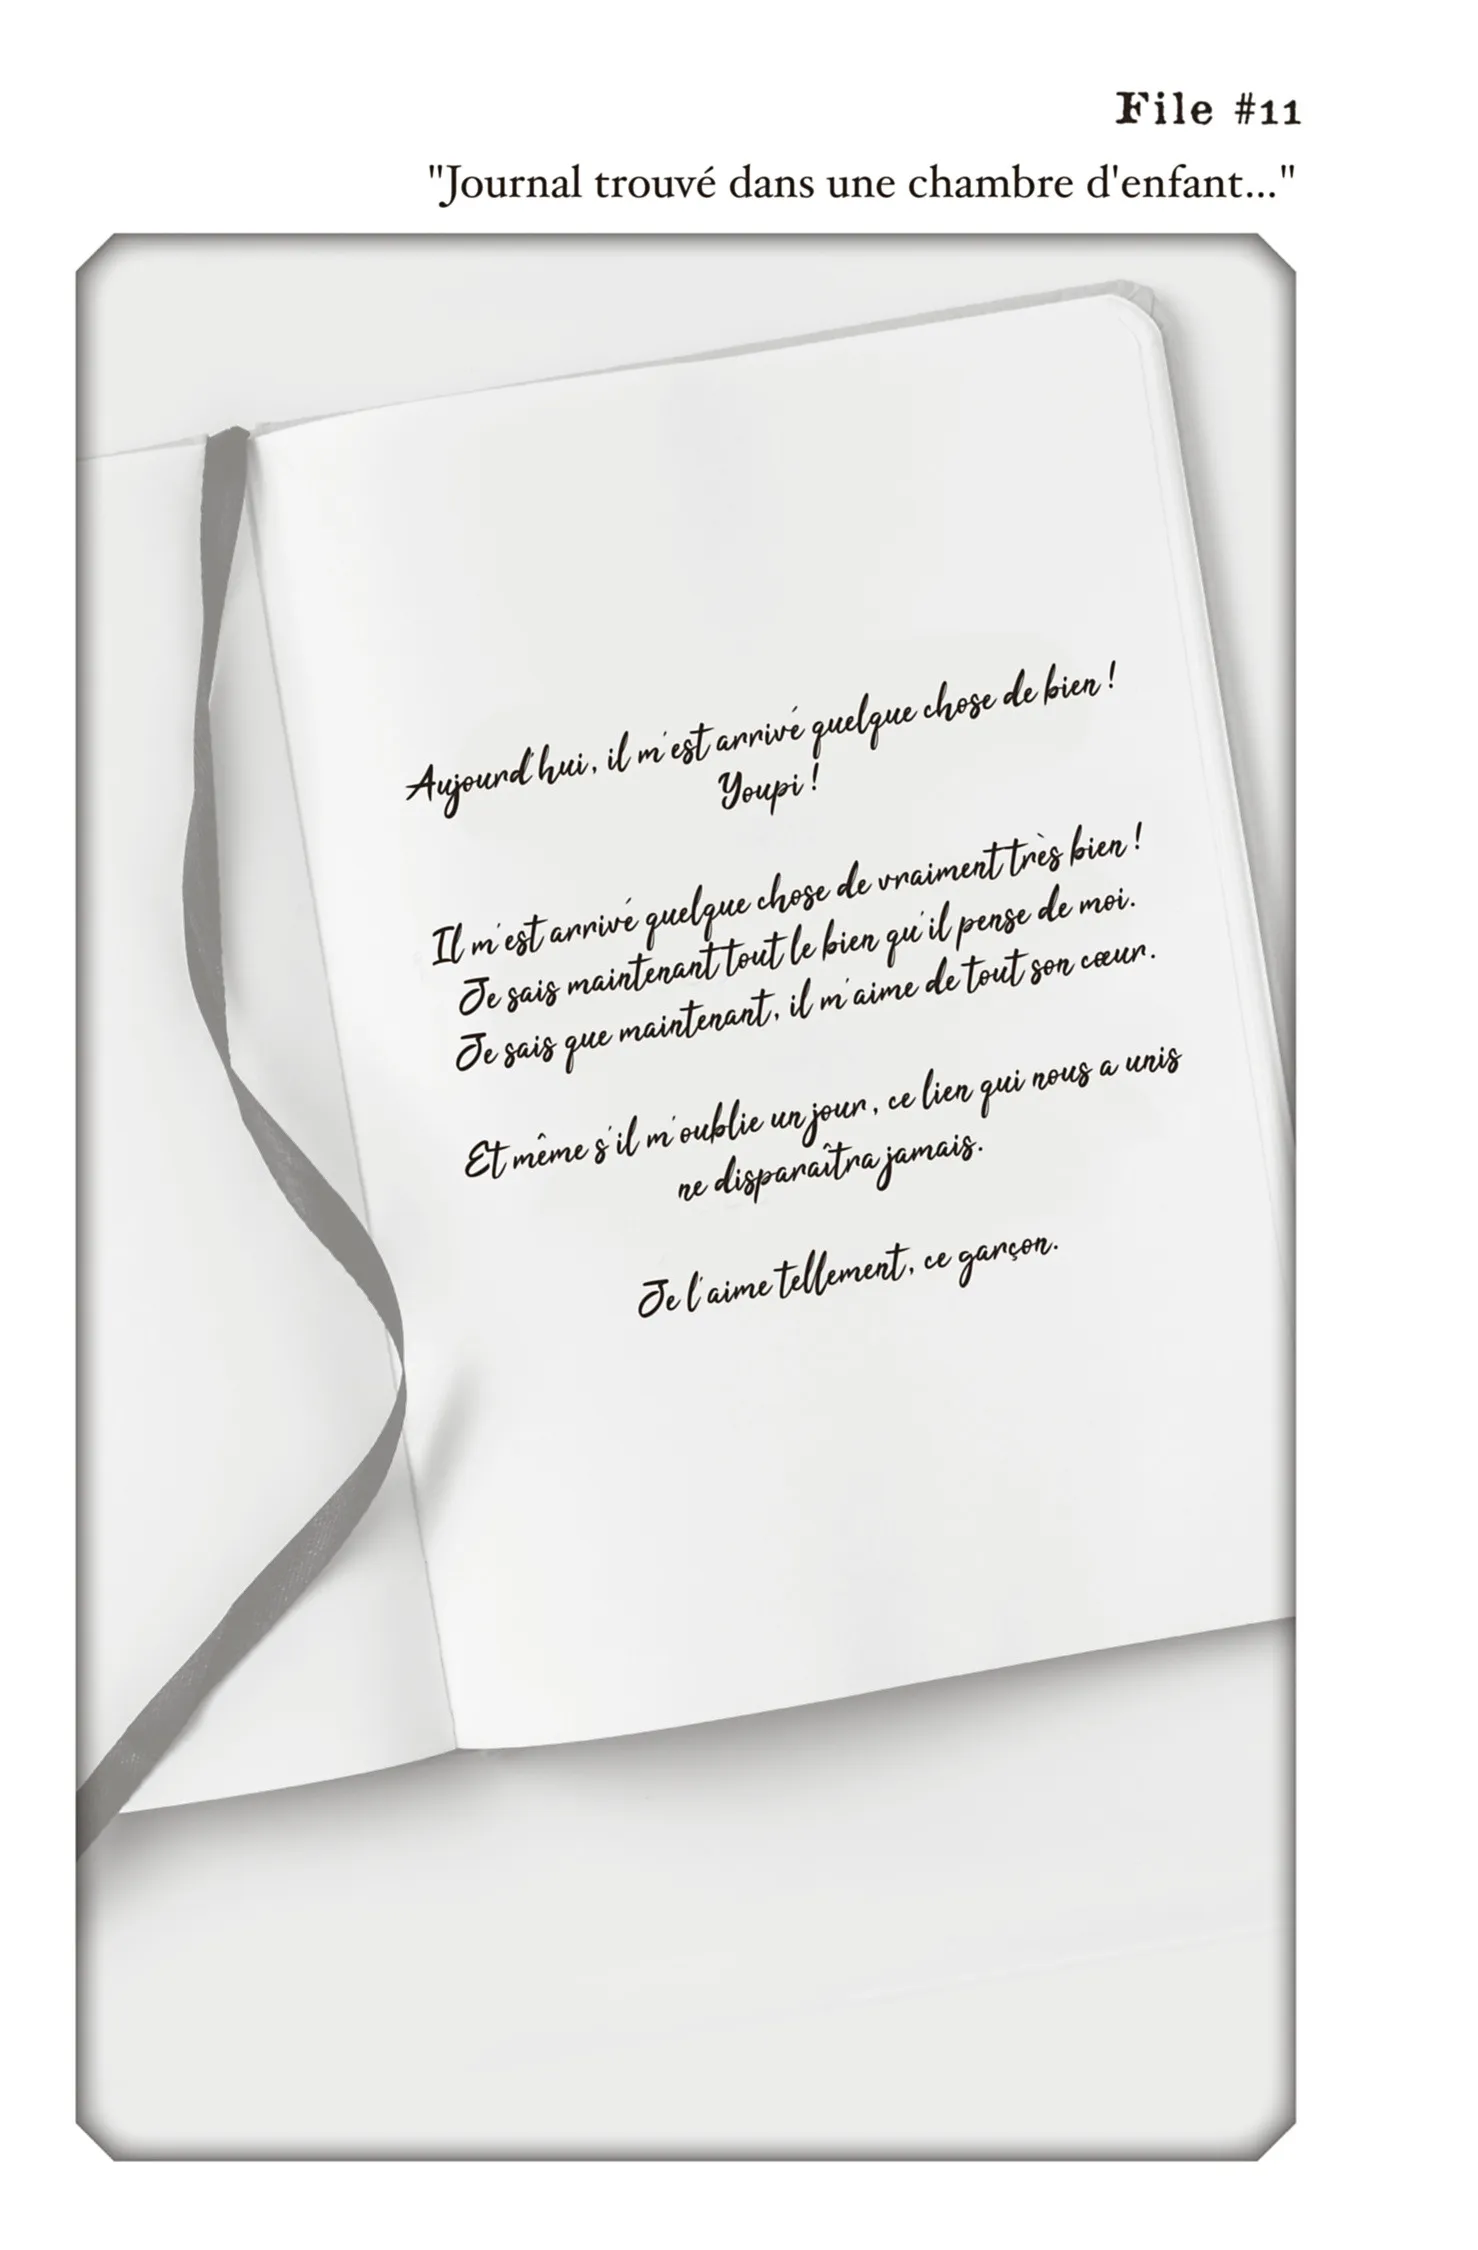 File #11
"Journal trouvé dans une chambre d'enfant..."
Aujourd'hui, il m'est arrivé quelque chose de bien !
Youpi !
Il m'est arrivé quelque chose de vraiment très bien !
Je sais maintenant tout le bien qu'il pense de moi.
Je sais que maintenant, il m'aime de tout son cœur.
Et même s'il m'oublie un jour, ce lien qui nous a unis
ne disparaîtra jamais.
Je l'aime tellement, ce garçon.